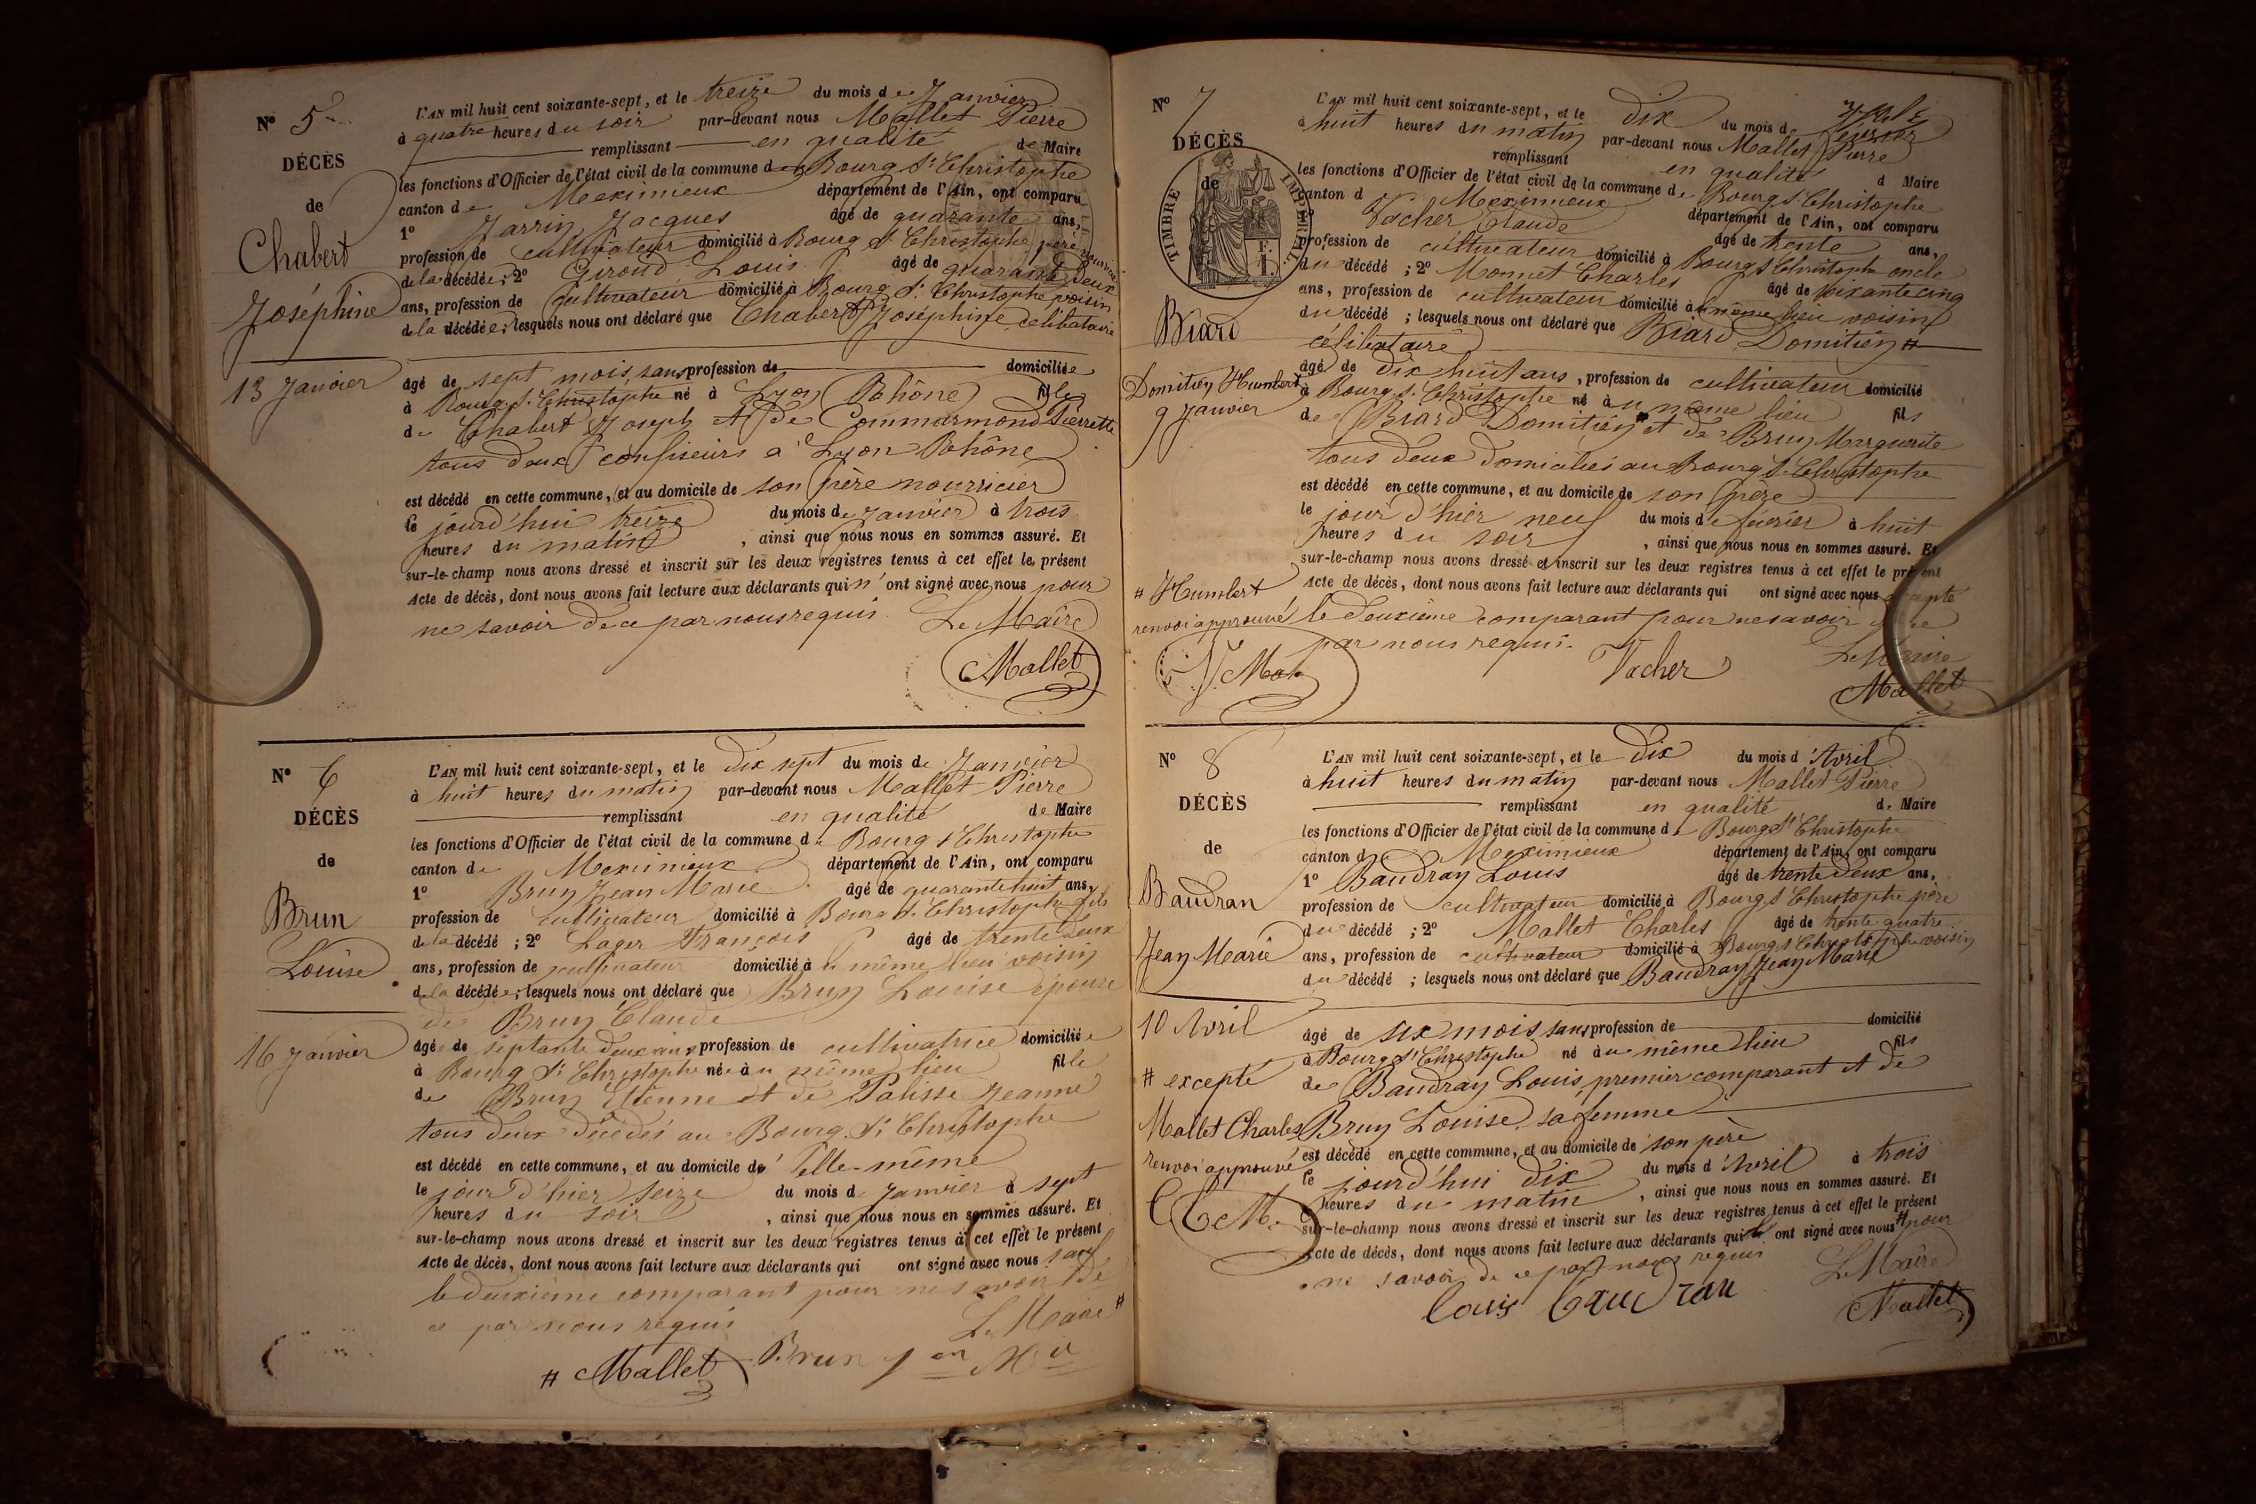 N° 5
DÉCÈS
de
Chabert
Joséphine
13 Janvier
L'AN mil huit cent soixante-sept, et le treize du mois de Janvier
à quatre heures du soir par-devant nous Mallet Pierre
remplissant en qualité de Maire
les fonctions d'Officier de l'état civil de la commune de Bourg St Christophe
canton de Meximieux département de l'Ain, ont comparu
1° Jarrin Jacques âgé de quarante ans,
profession de cultivateur domicilié à Bourg St Christophe père nourricier
de la décédée ; 2° Giroud Louis âgé de quarante deux
ans, profession de cultivateur domicilié à Bourg St Christophe voisin
de la décédée ; lesquels nous ont déclaré que Chabert Joséphine célibataire
âgé de sept mois, sans profession de domiciliée
à Bourg St Christophe né à Lyon Rhône fille
de Chabert Joseph et de Commarmond Pierrette
tous deux confiseurs à Lyon Rhône
est décédé en cette commune, et au domicile de son père nourricier
le jourd'hui treize du mois de Janvier à trois
heures du matin, ainsi que nous nous en sommes assuré. Et
sur-le-champ nous avons dressé et inscrit sur les deux registres tenus à cet effet le présent
Acte de décès, dont nous avons fait lecture aux déclarants qui n'ont signé avec nous pour
ne savoir de ce par nous requis
Le Maire
Mallet
N° 6
DÉCÈS
de
Brun
Louise
16 Janvier
L'AN mil huit cent soixante-sept, et le dix sept du mois de Janvier
à huit heures du matin par-devant nous Mallet Pierre
remplissant en qualité de Maire
les fonctions d'Officier de l'état civil de la commune de Bourg St Christophe
canton de Meximieux département de l'Ain, ont comparu
1° Brun Jean Marie âgé de quarante huit ans,
profession de cultivateur domicilié à Bourg St Christophe fils
de la décédé ; 2° Lager François âgé de trente deux
ans, profession de cultivateur domicilié à u même lieu voisin
de la décédée ; lesquels nous ont déclaré que Brun Louise épouse
de Brun Claude
âgé de septante deux ans profession de cultivatrice domiciliée
à Bourg St Christophe née à u même lieu fille
de Brun Etienne et de Palisse Jeanne
tous deux décédés au Bourg St Christophe
est décédé en cette commune, et au domicile d' elle-même
le jour d'hier seize du mois de Janvier à sept
heures du soir, ainsi que nous nous en sommes assuré. Et
sur-le-champ nous avons dressé et inscrit sur les deux registres tenus à cet effet le présent
Acte de décès, dont nous avons fait lecture aux déclarants qui ont signé avec nous sauf
le deuxième comparant pour ne savoir de
ce par nous requis
Le Maire #
# Mallet Brun
N° 7
DÉCÈS
de
TIMBRE IMPÉRIAL
Biard
Domitien Humbert
9 Janvier
# Humbert
renvoi approuvé
L'AN mil huit cent soixante-sept, et le dix du mois de février
à huit heures du matin par-devant nous Mallet Pierre
remplissant en qualité d Maire
les fonctions d'Officier de l'état civil de la commune de Bourg St Christophe
canton d Meximieux département de l'Ain, ont comparu
Vacher Claude âgé de trente ans,
profession de cultivateur domicilié à Bourg St Christophe oncle
du décédé ; 2° Monnet Charles âgé de soixante cinq
ans, profession de cultivateur domicilié à u même lieu voisin
du décédé ; lesquels nous ont déclaré que Biard Domitien #
célibataire
âgé de dix huit ans, profession de cultivateur domicilié
à Bourg St Christophe né à u même lieu fils
de Biard Domitien et de Brun Marguerite
tous deux domiciliés au Bourg St Christophe
est décédé en cette commune, et au domicile de son père
le jour d'hier neuf du mois de février à huit
heures du soir, ainsi que nous nous en sommes assuré. Et
sur-le-champ nous avons dressé et inscrit sur les deux registres tenus à cet effet le présent
Acte de décès, dont nous avons fait lecture aux déclarants qui ont signé avec nous excepté
le deuxième comparant pour ne savoir
par nous requis.
Vacher
Le Maire
Mallet
N° 8
DÉCÈS
de
Baudran
Jean Marie
10 Avril
# excepté
Mallet Charles
renvoi approuvé
L'AN mil huit cent soixante-sept, et le dix du mois d'Avril
à huit heures du matin par-devant nous Mallet Pierre
remplissant en qualité de Maire
les fonctions d'Officier de l'état civil de la commune de Bourg St Christophe
canton d Meximieux département de l'Ain, ont comparu
1° Baudran Louis âgé de trente deux ans,
profession de cultivateur domicilié à Bourg St Christophe père
du décédé ; 2° Mallet Charles âgé de trente quatre
ans, profession de cultivateur domicilié à Bourg St Christophe voisin
du décédé ; lesquels nous ont déclaré que Baudran Jean Marie
âgé de six mois, sans profession de domicilié
à Bourg St Christophe né à u même lieu fils
de Baudran Louis premier comparant et de
Brun Louise sa femme
est décédé en cette commune, et au domicile de son père
le jourd'hui dix du mois d'Avril à trois
heures du matin, ainsi que nous nous en sommes assuré. Et
sur-le-champ nous avons dressé et inscrit sur les deux registres tenus à cet effet le présent
Acte de décès, dont nous avons fait lecture aux déclarants qui ont signé avec nous # pour
ne savoir de ce par nous requis
Louis Baudran
Le Maire
Mallet